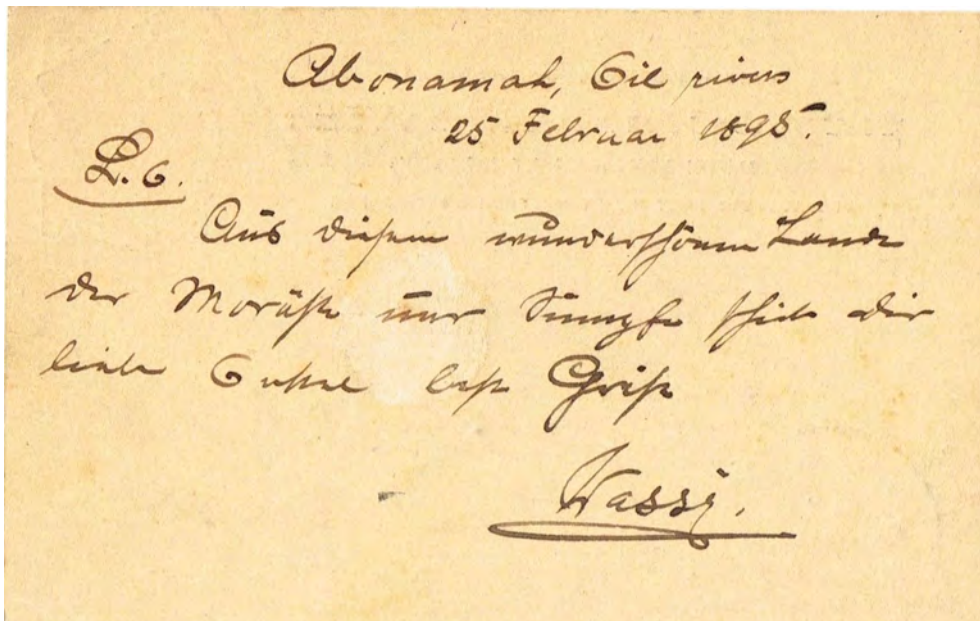 Abonamah, Oil rivers
25 Februar 1895.
L. G.
Aus diesem wunderschönen Lande
der Moräste und Sümpfe schickt dir
liebe beste Grüße
Wassy.